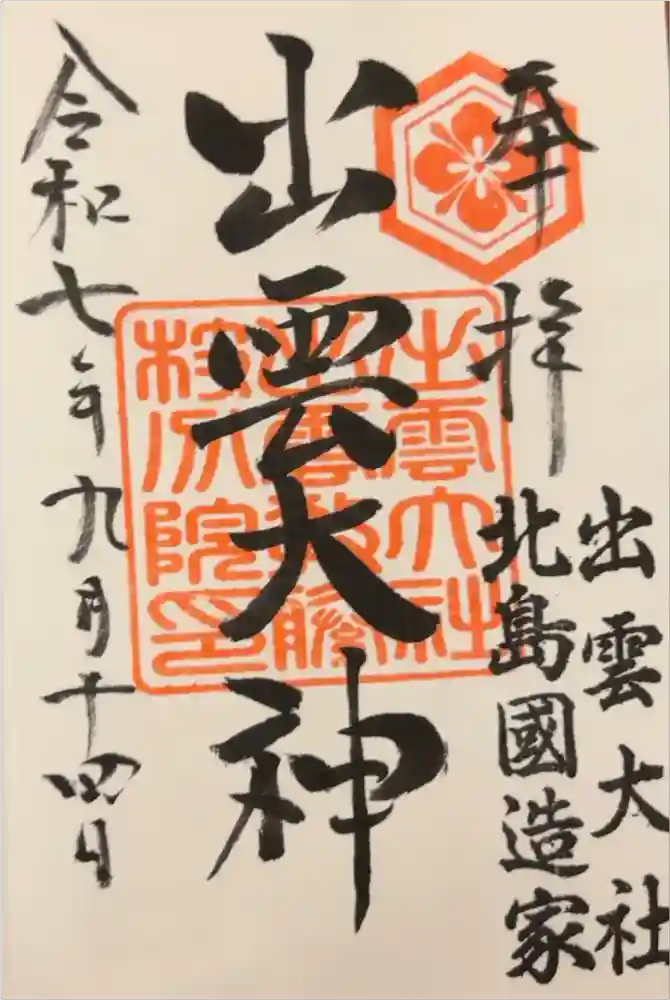 奉拝
出雲大社
北島國造家
出雲大神
令和七年九月十四日
出雲大社